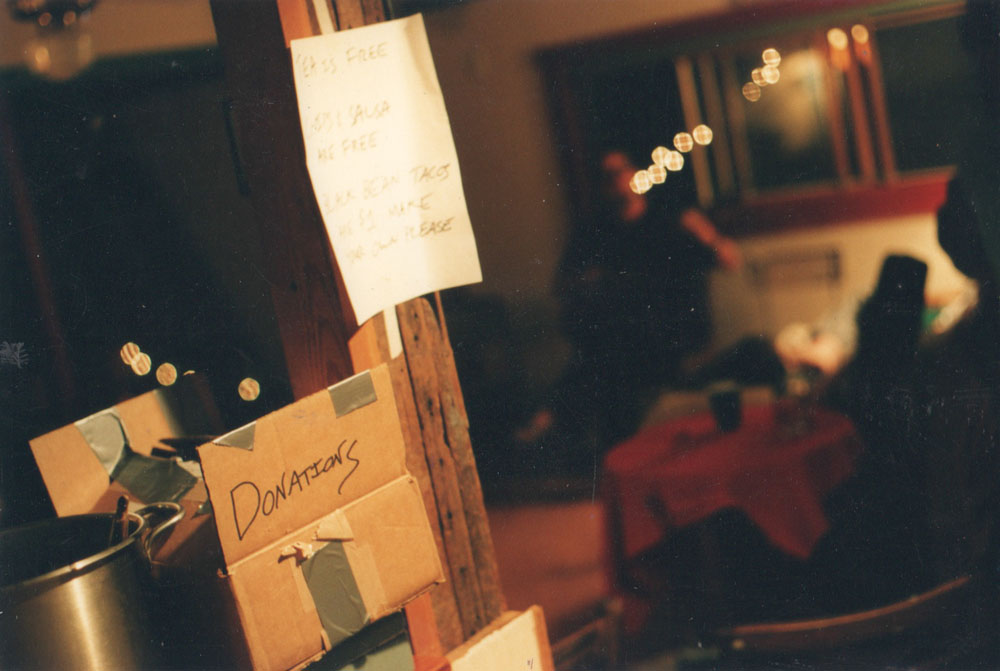 IS FREE
& SALSA
ARE FREE.
BLACK BEAN TACOS
ARE $1 MAKE
YOUR OWN PLEASE
DONATIONS